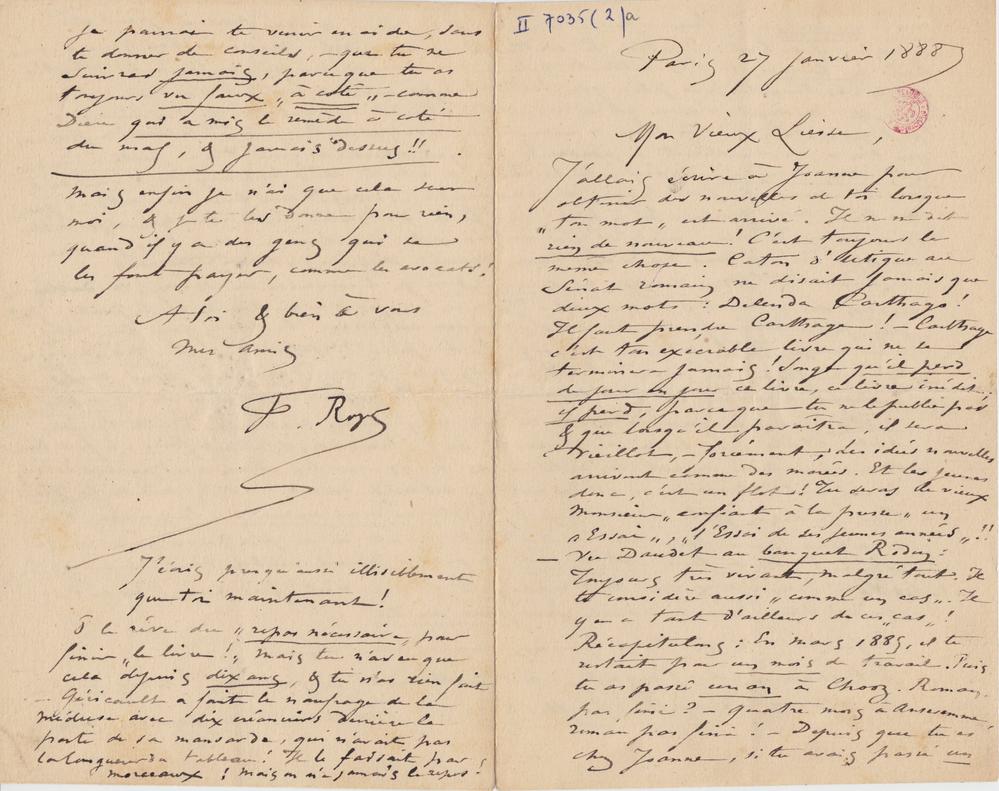 II 7035(2)a
Paris 27 Janvier 1888
Mon Vieux Liesse,
J'allais écrire à Joanne pour
obtenir des nouvelles de toi lorsque
"ton mot" est arrivé. Il ne me dit
rien de nouveau! C'est toujours la
même chose. Caton d'Utique au
Sénat romain ne disait jamais que
deux mots: Delenda Carthago!
Il faut prendre Carthage! - Carthage
c'est ton execrable livre qui ne se
terminera jamais! Songe qu'il perd
de jour en jour ce livre, ce livre inédit,
il perd, parce que tu ne le publie pas
& que lorsqu'il paraîtra, il sera
vieillot, - forcément, des idées nouvelles
arrivent comme des marées. Et les jeunes
donc, c'est un flot! Tu seras le vieux
Monsieur "enfiant à la presse" un
"Essai", "l'Essai de ses jeunes années"!!
- Vu Daudet au banquet Rodin:
Toujours très vivant, malgré tout. Il
te considère aussi "comme un cas". Il
y en a tant d'ailleurs de ces "cas"!
Récapitulons: En mars 1885, il te
restait pour un mois de travail. Puis
tu as passé un an à Chooz. Roman
pas fini? - quatre mois à Anseremme,
roman pas fini! - Depuis que tu es
chez Joanne, si tu avais passé un
je pourrai te venir en aide, sans
te donner de conseils, - que tu ne
suivras jamais, parce que tu as
toujours vu faux "à côté" - comme
Dieu qui a mis le remède à côté
du mal, & jamais dessus!!
Mais enfin je n'ai que cela sur
moi, & je te les donne pour rien,
quand il y a des gens qui se
les font payer, comme les avocats!
A toi & bien à vous
mes amis
F. Rops
J'écris presqu'aussi illisiblement
que toi maintenant!
O le rêve du "repos nécessaire, pour
finir "le livre!", mais tu n'as eu que
cela depuis dix ans, & tu n'as rien fait
- Géricault a fait le naufrage de la
méduse avec dix créanciers derrière la
porte de sa mansarde, qui n'avait pas
la longueur du tableau! Il le faisait par
morceaux! Mais on n'a jamais le repos!